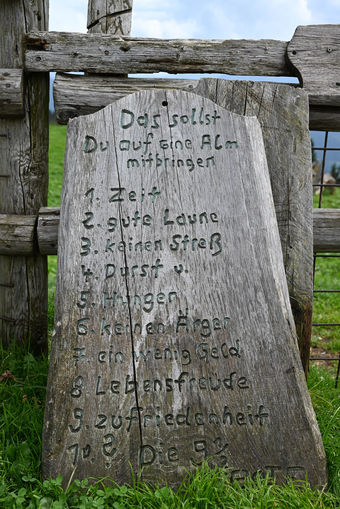 Das sollst
Du auf eine Alm
mitbringen
1. Zeit
2. gute Laune
3. keinen Streß
4. Durst u.
5. Hunger
6. keinen Ärger
7. ein wenig Geld
8. Lebensfreude
9. zufriedenheit
10. Die